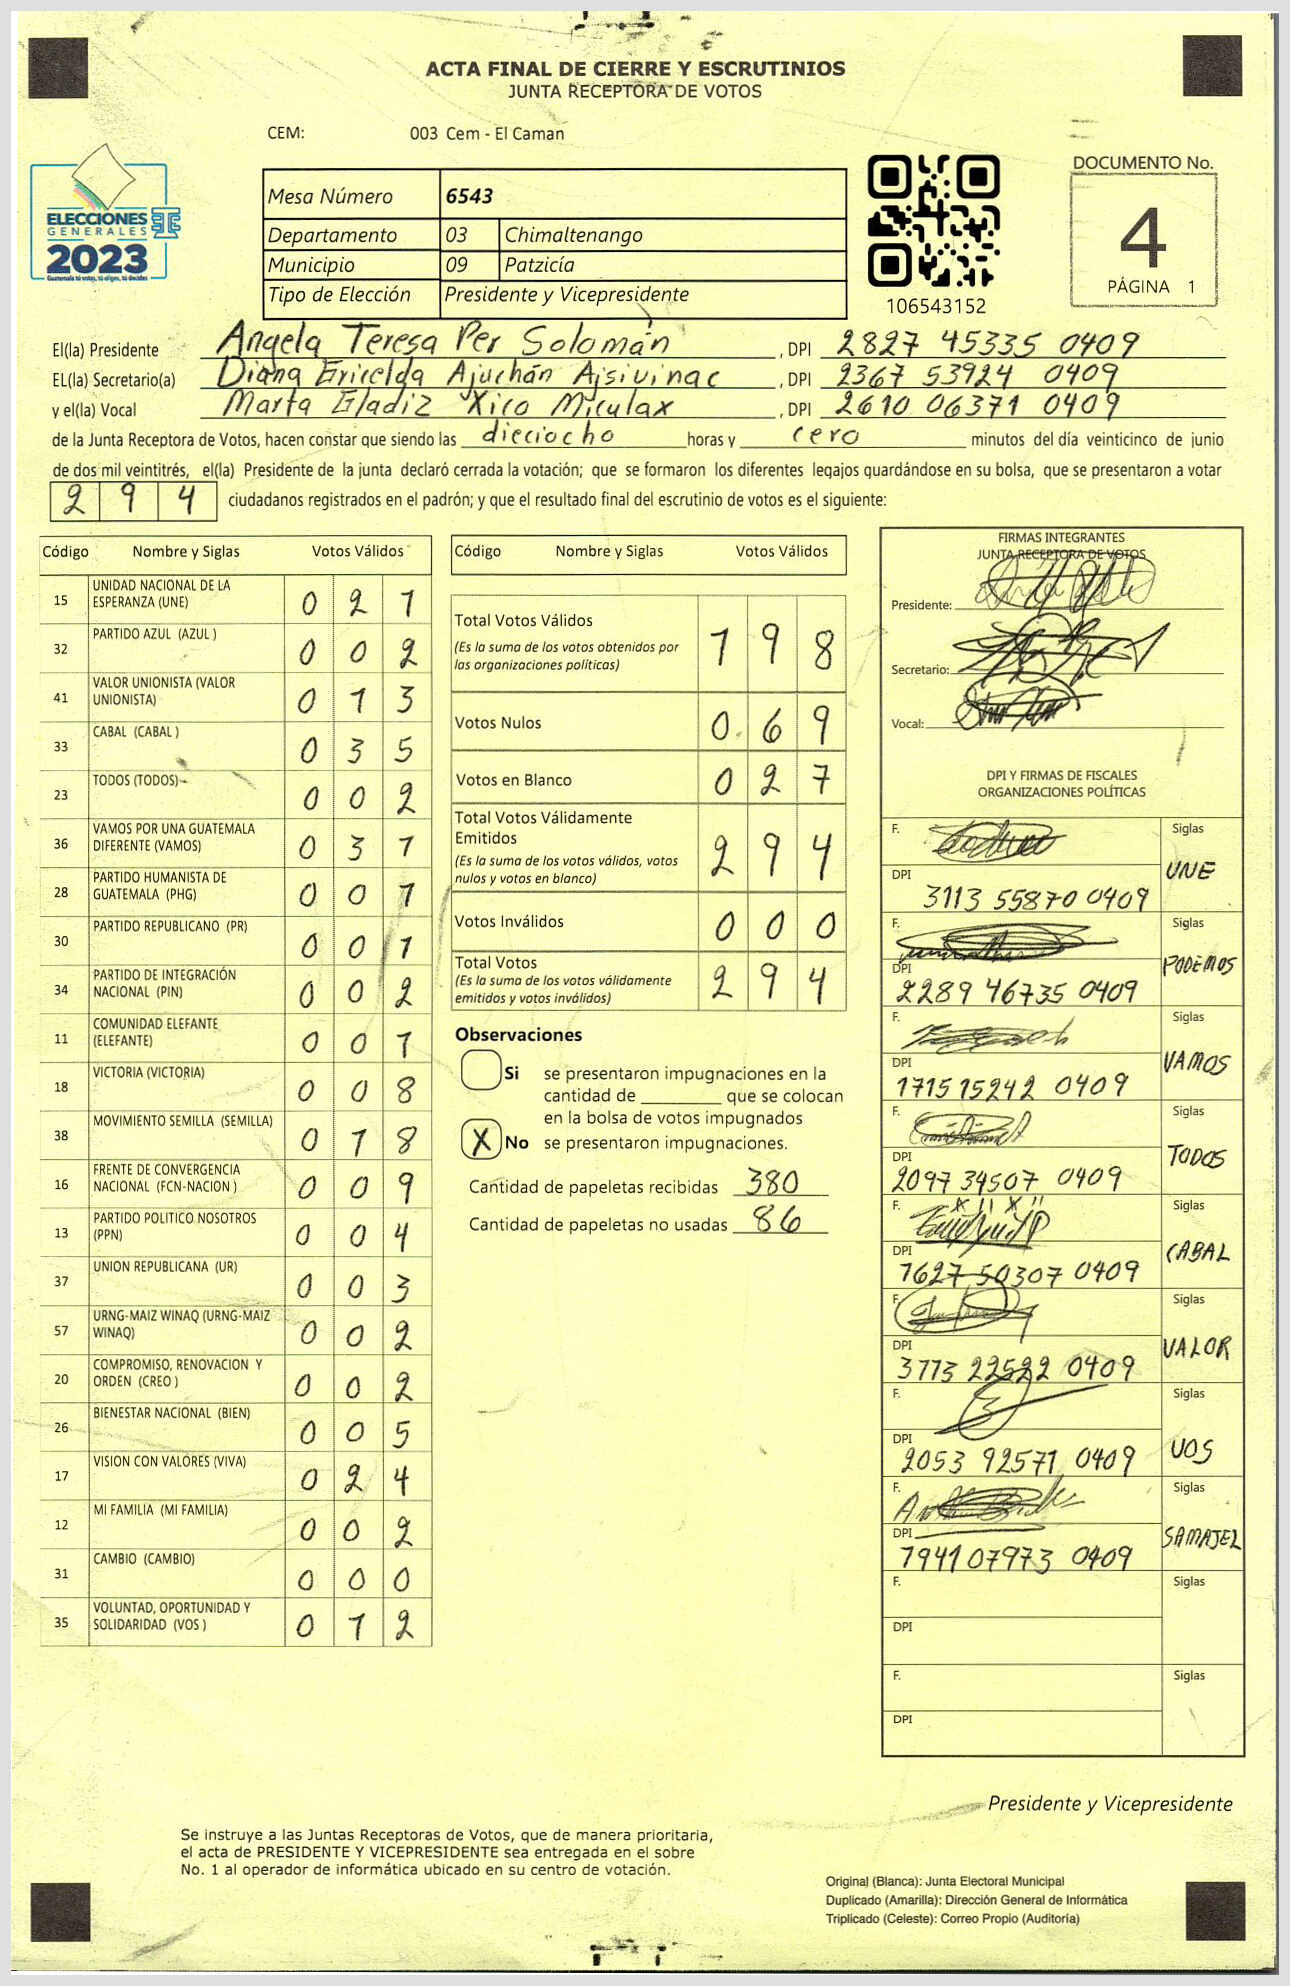 ACTA FINAL DE CIERRE Y ESCRUTINIOS
JUNTA RECEPTORA DE VOTOS
CEM: 003 Cem - El Caman
ELECCIONES
GENERALES
2023
Guatemala tú votas, tú eliges, tú decides
Mesa Número 6543
Departamento 03 Chimaltenango
Municipio 09 Patzicía
Tipo de Elección Presidente y Vicepresidente
106543152
DOCUMENTO No.
4
PÁGINA 1
El(la) Presidente Angela Teresa Per Solomán , DPI 2827 45335 0409
EL(la) Secretario(a) Diana Gricelda Ajuchán Ajsivinac , DPI 2367 53924 0409
y el(la) Vocal Marta Gladiz Xico Miculax , DPI 2610 06371 0409
de la Junta Receptora de Votos, hacen constar que siendo las dieciocho horas y cero minutos del día veinticinco de junio
de dos mil veintitrés, el(la) Presidente de la junta declaró cerrada la votación; que se formaron los diferentes legajos quardándose en su bolsa, que se presentaron a votar
294 ciudadanos registrados en el padrón; y que el resultado final del escrutinio de votos es el siguiente:
Código Nombre y Siglas Votos Válidos
15 UNIDAD NACIONAL DE LA ESPERANZA (UNE) 0 2 1
32 PARTIDO AZUL (AZUL ) 0 0 2
41 VALOR UNIONISTA (VALOR UNIONISTA) 0 1 3
33 CABAL (CABAL ) 0 3 5
23 TODOS (TODOS) 0 0 2
36 VAMOS POR UNA GUATEMALA DIFERENTE (VAMOS) 0 3 1
28 PARTIDO HUMANISTA DE GUATEMALA (PHG) 0 0 1
30 PARTIDO REPUBLICANO (PR) 0 0 1
34 PARTIDO DE INTEGRACIÓN NACIONAL (PIN) 0 0 2
11 COMUNIDAD ELEFANTE (ELEFANTE) 0 0 1
18 VICTORIA (VICTORIA) 0 0 8
38 MOVIMIENTO SEMILLA (SEMILLA) 0 1 8
16 FRENTE DE CONVERGENCIA NACIONAL (FCN-NACION ) 0 0 9
13 PARTIDO POLITICO NOSOTROS (PPN) 0 0 4
37 UNION REPUBLICANA (UR) 0 0 3
57 URNG-MAIZ WINAQ (URNG-MAIZ WINAQ) 0 0 2
20 COMPROMISO, RENOVACION Y ORDEN (CREO ) 0 0 2
26 BIENESTAR NACIONAL (BIEN) 0 0 5
17 VISION CON VALORES (VIVA) 0 2 4
12 MI FAMILIA (MI FAMILIA) 0 0 2
31 CAMBIO (CAMBIO) 0 0 0
35 VOLUNTAD, OPORTUNIDAD Y SOLIDARIDAD (VOS ) 0 1 2
Código Nombre y Siglas Votos Válidos
Total Votos Válidos 1 9 8
(Es la suma de los votos obtenidos por
las organizaciones políticas)
Votos Nulos 0 6 9
Votos en Blanco 0 2 7
Total Votos Válidamente
Emitidos 2 9 4
(Es la suma de los votos válidos, votos
nulos y votos en blanco)
Votos Inválidos 0 0 0
Total Votos 2 9 4
(Es la suma de los votos válidamente
emitidos y votos inválidos)
Observaciones
Si se presentaron impugnaciones en la
cantidad de ________ que se colocan
en la bolsa de votos impugnados
X No se presentaron impugnaciones.
Cantidad de papeletas recibidas 380
Cantidad de papeletas no usadas 86
FIRMAS INTEGRANTES
JUNTA RECEPTORA DE VOTOS
Presidente:
Secretario:
Vocal:
DPI Y FIRMAS DE FISCALES
ORGANIZACIONES POLÍTICAS
F. Siglas
DPI 3113 55870 0409 UNE
F. Siglas
DPI 2289 46735 0409 PODEMOS
F. Siglas
DPI 1715 15242 0409 VAMOS
F. Siglas
DPI 2097 34507 0409 TODOS
F. Siglas
DPI 1627 50307 0409 CABAL
F. Siglas
DPI 3113 22522 0409 VALOR
F. Siglas
DPI 2053 92571 0409 VOS
F. Siglas
DPI 1941 07973 0409 SAMAJEL
F. Siglas
DPI
F. Siglas
DPI
Presidente y Vicepresidente
Se instruye a las Juntas Receptoras de Votos, que de manera prioritaria,
el acta de PRESIDENTE Y VICEPRESIDENTE sea entregada en el sobre
No. 1 al operador de informática ubicado en su centro de votación.
Original (Blanca): Junta Electoral Municipal
Duplicado (Amarilla): Dirección General de Informática
Triplicado (Celeste): Correo Propio (Auditoría)